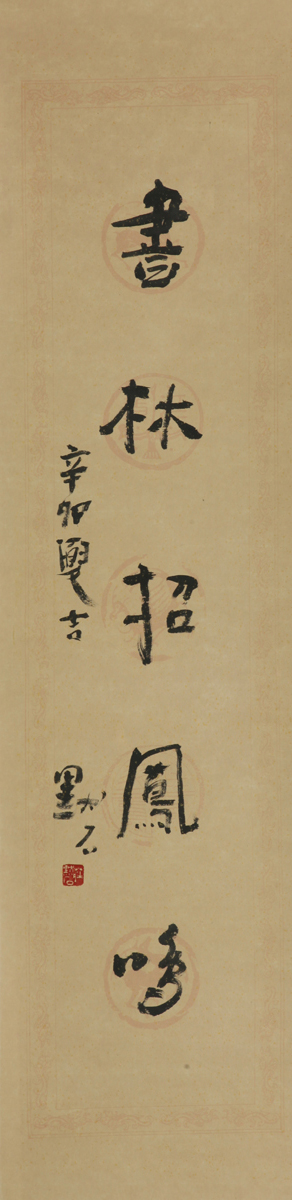 書林招鳳鳴
辛卯雙吉
默石